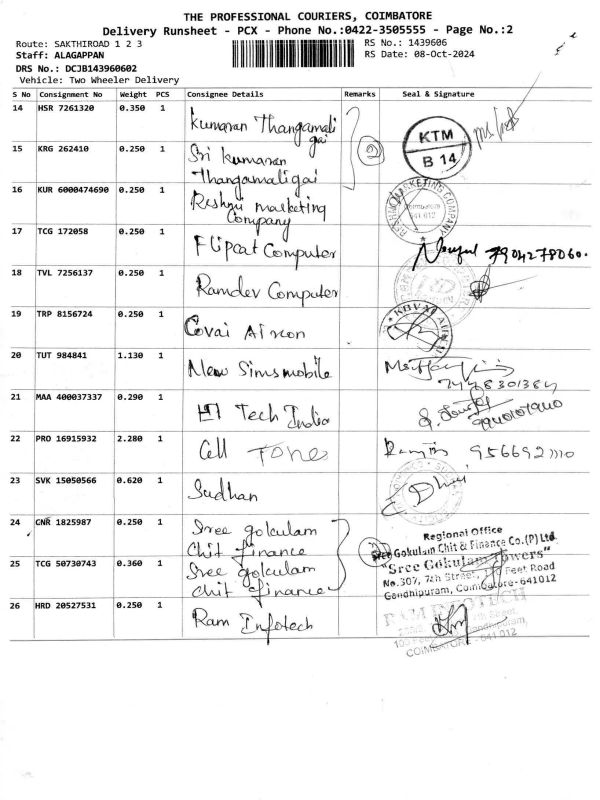 THE PROFESSIONAL COURIERS, COIMBATORE
Delivery Runsheet - PCX - Phone No.:0422-3505555 - Page No.:2
Route: SAKTHIROAD 1 2 3
RS No.: 1439606
Staff: ALAGAPPAN
RS Date: 08-Oct-2024
DRS No.: DCJB143960602
Vehicle: Two Wheeler Delivery
S No Consignment No Weight PCS Consignee Details Remarks Seal & Signature
14 HSR 7261320 0.350 1 Kumaran Thangamali
gai
KTM
B 14
15 KRG 262410 0.250 1 Sri Kumaran
Thangamaligai
2
16 KUR 6000474690 0.250 1 Reshmi marketing
Company
17 TCG 172058 0.250 1 Flipcat Computer
7904278060.
18 TVL 7256137 0.250 1 Ramdev Computer
19 TRP 8156724 0.250 1 Covai Aircon
20 TUT 984841 1.130 1 New Simsmobile
21 MAA 400037337 0.290 1 HI Tech India
22 PRO 16915932 2.280 1 Cell Tones
23 SVK 15050566 0.620 1 Sudhan
24 CNR 1825987 0.250 1 Sree gokulam
Chit finance
2
Regional Office
Sree Gokulam Chit & Finance Co.(P) Ltd.
25 TCG 50730743 0.360 1 Sree gokulam
chit finance
"Sree Gokulam Towers"
No.307, 7th Street, Feet Road
Gandhipuram, Coimbatore-641012
26 HRD 20527531 0.250 1 Ram Infotech
RAM INFOTECH
COIMBATORE - 641 012